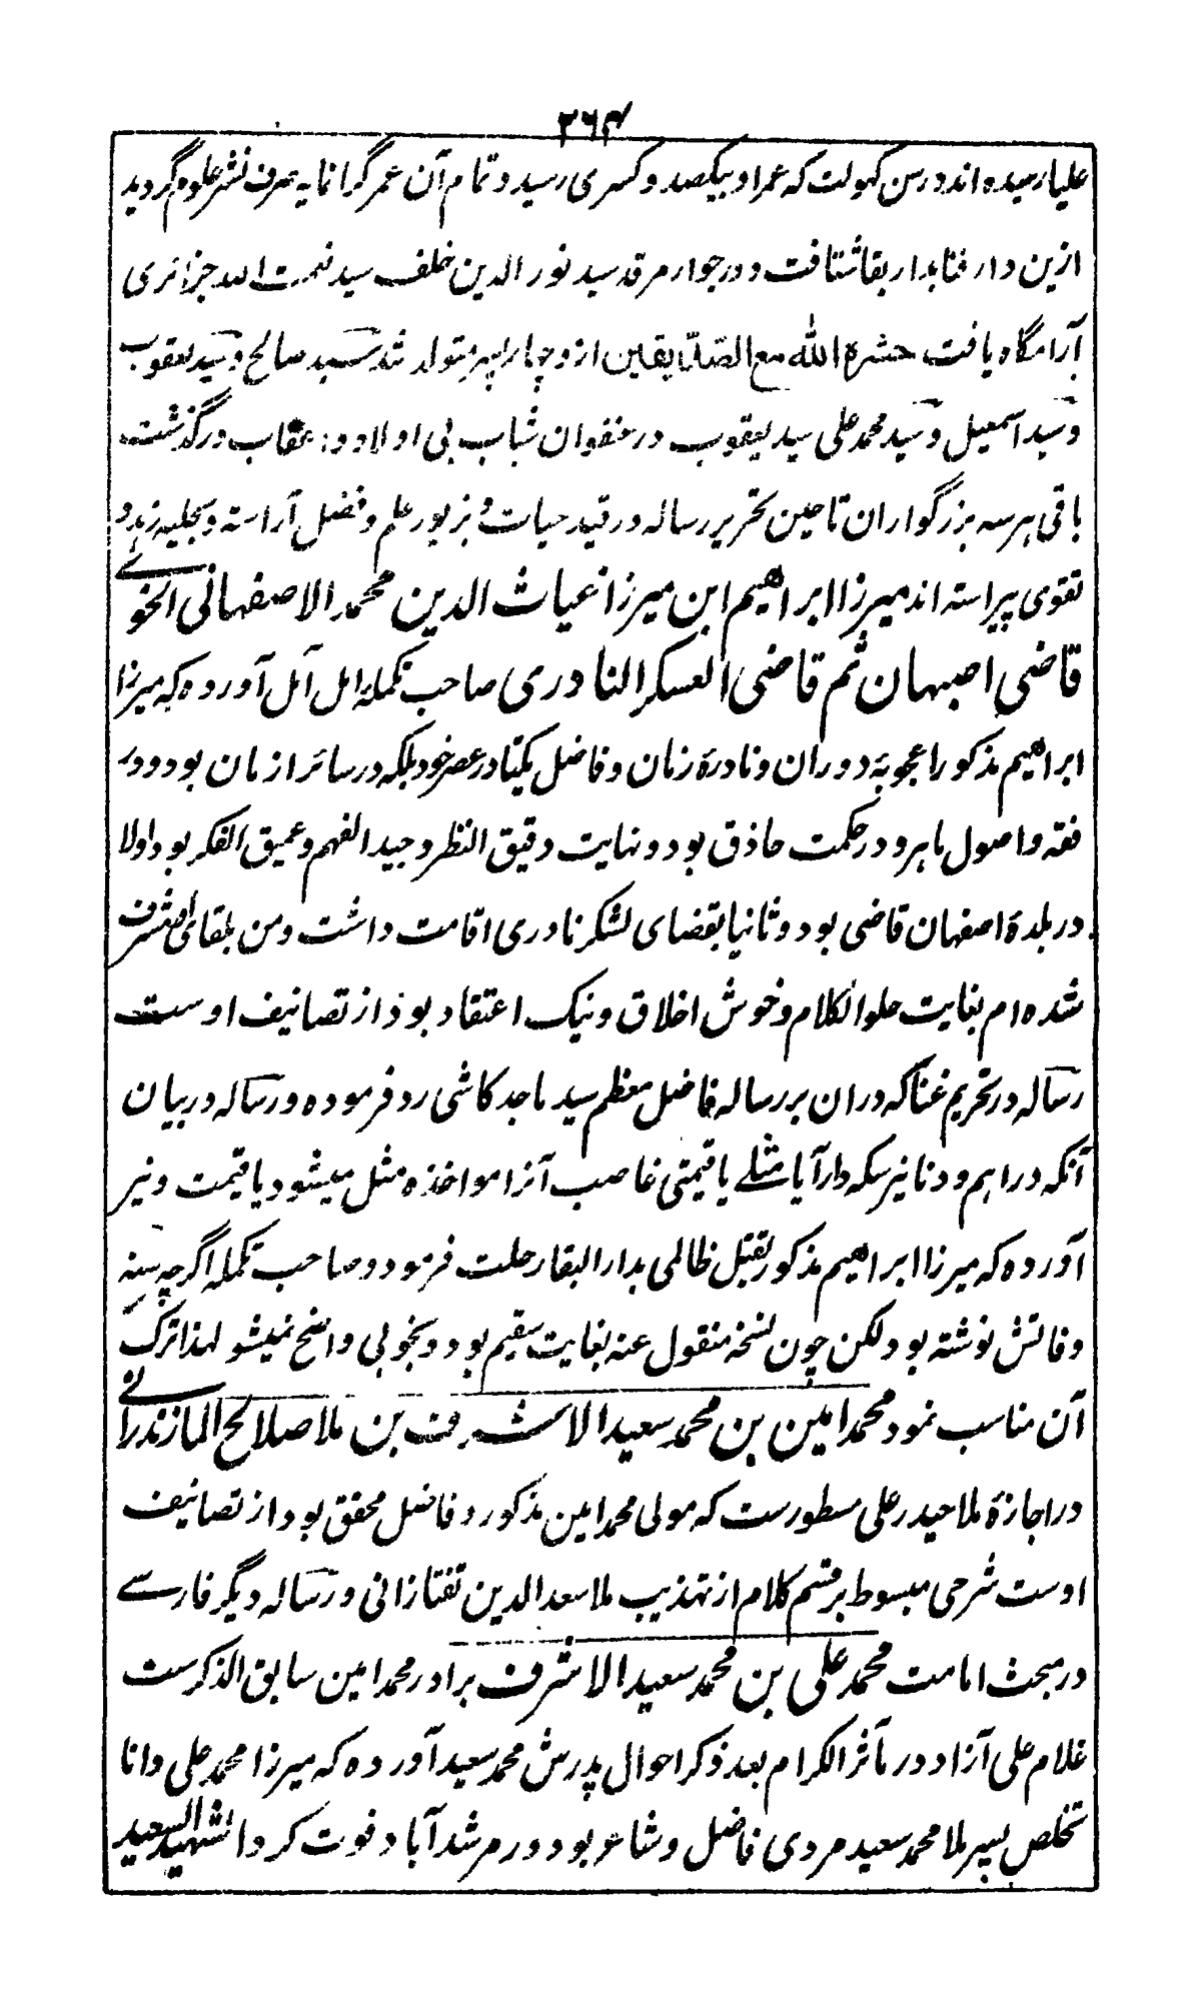 ۳۶۴
علیا رسیده اند در سن کهولت که عمر او بیکصد و کسری رسید و تمام آن عمر گرانمایه صرف نشر علوم گردید
ازین دار فنا بدار بقا شتافت و در جوار مرقد سید نور الدین خلف سید نعمت الله جزائری
آرامگاه یافت حشره الله مع الصدیقین ازو چهار پسر متولد شد سید صالح و سید یعقوب
و سید اسمعیل و سید محمد علی سید یعقوب در عنفوان شباب بی اولاد و اعقاب در گذشت
باقی هر سه بزرگواران تا حین تحریر رساله در قید حیات و بزیور علم و فضل آراسته و بحلیه زهد و
تقوی پیراسته اند میرزا ابراهیم ابن میرزا غیاث الدین محمد الاصفهانی الخوئے
قاضی اصبهان ثم قاضی العسکر النادری صاحب تکملۀ امل آمل آورده که میرزا
ابراهیم مذکور اعجوبۀ دوران و نادرۀ زمان و فاضل یکتا در عصر خود بلکه در سائر ازمان بود و در
فقه و اصول ماهر و در حکمت حاذق بود و نهایت دقیق النظر و جید الفهم و عمیق الفکر بود اولا
در بلدۀ اصفهان قاضی بود و ثانیا بقضای لشکر نادری اقامت داشت و من بلقای او مشرف
شده ام بغایت حلو الکلام و خوش اخلاق و نیک اعتقاد بود از تصانیف اوست
رساله در تحریم غنا که دران بر رساله فاضل معظم سید ماجد کاشی رد فرموده و رساله در بیان
آنکه دراهم و دنانیر سکه دار آیا مثلے یا قیمتی غاصب آنرا مواخذه مثل میشود یا قیمت و نیز
آورده که میرزا ابراهیم مذکور بقتل ظالمی بدار البقا رحلت فرمود و صاحب تکمله اگرچه سنه
وفاتش نوشته بود لکن چون نسخه منقول عنه بغایت سقیم بود و بخوبی واضح نمیشو لهذا ترک
آن مناسب نمود محمد امین بن محمد سعید الاشرف بن ملا صالح المازندرانے
در اجازۀ ملا حیدر علی مسطورست که مولی محمد امین مذکور فاضل محقق بود از تصانیف
اوست شرحی مبسوط بر قسم کلام از تهذیب ملا سعد الدین تفتازانی و رساله دیگر فارسے
در مبحث امامت محمد علی بن محمد سعید الاشرف برادر محمد امین سابق الذکرست
غلام علی آزاد در مآثر الکرام بعد ذکر احوال پدرش محمد سعید آورده که میرزا محمد علی دانا
تخلص پسر ملا محمد سعید مردی فاضل و شاعر بود در مرشد آباد فوت کرد الشهید السعید